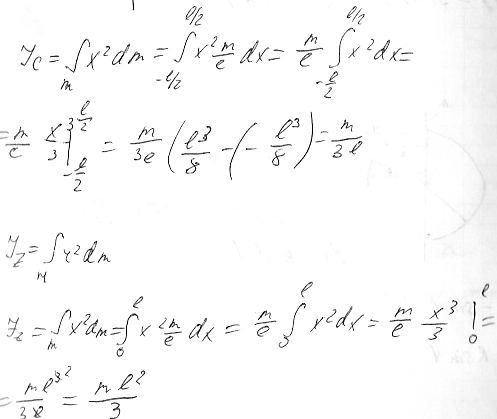 J_C = ∫_m x² dm = ∫_{-ℓ/2}^{ℓ/2} x² m/ℓ dx = m/ℓ ∫_{-ℓ/2}^{ℓ/2} x² dx =
= m/ℓ x³/3 |_{-ℓ/2}^{ℓ/2} = m/3ℓ (ℓ³/8 - (-ℓ³/8)) = m/3ℓ
J_Z = ∫_M r² dm
J_z = ∫_m x² dm = ∫_0^ℓ x² m/ℓ dx = m/ℓ ∫_0^ℓ x² dx = m/ℓ x³/3 |_0^ℓ =
= mℓ³²/3ℓ = mℓ²/3